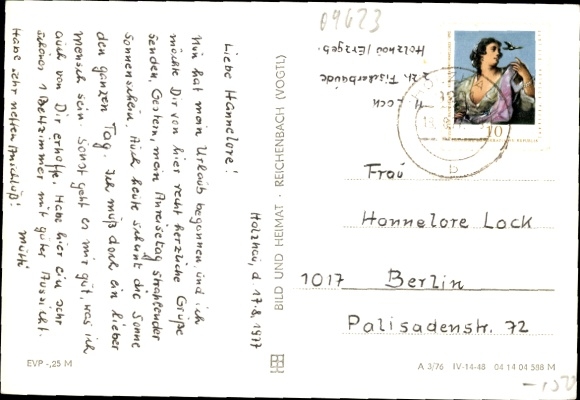 09623
Holzhau, d. 17.8.1977
Liebe Hannelore!
Nun hat mein Urlaub begonnen und ich
möchte Dir von hier recht herzliche Grüße
senden. Gestern, mein Anreisetag strahlender
Sonnenschein. Auch heute scheint die Sonne
den ganzen Tag. Ich muß doch ein lieber
Mensch sein. Sonst geht es mir gut, was ich
auch von Dir erhoffe. Habe hier ein sehr
schönes 1 Bettzimmer mit guter Aussicht.
Habe sehr netten Anschluß! Mutti
H. Lock
z. Zt. Fischerbaude
Holzhau/Erzgeb.
10
Frau
Hannelore Lock
1017 Berlin
Palisadenstr. 72
BILD UND HEIMAT · REICHENBACH (VOGTL)
EVP -,25 M
A 3/76 IV-14-48 04 14 04 588 M